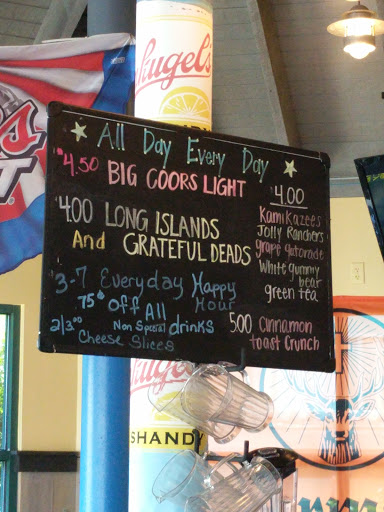 Leinenkugel's
All Day Every Day
$4.50 BIG COORS LIGHT
4.00 LONG ISLANDS
And GRATEFUL DEADS
3-7 Everyday Happy Hour
75¢ Off All
Non Special drinks
2/3.00 Cheese Slices
4.00
Kamikazees
Jolly Ranchers
grape gatorade
White gummy bear
green tea
5.00 Cinnamon
toast Crunch
SHANDY